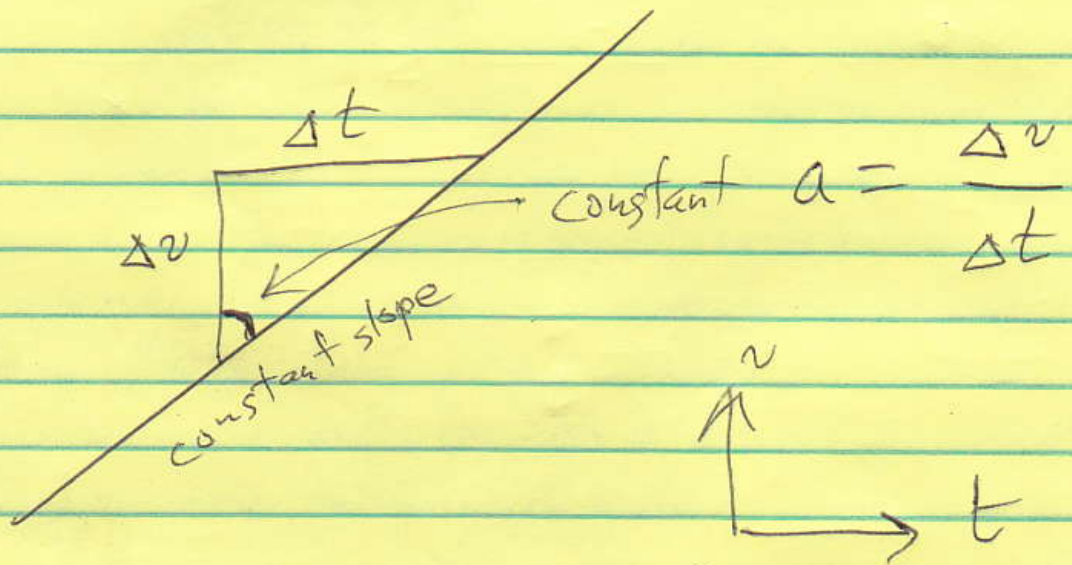 Δt
constant a = Δv / Δt
Δv
constant slope
v
t